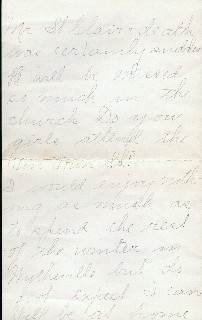 Mr St Clairs death
was certainly sudden
He will be missed
so much in the
church Do your
girls attend the
new
I would enjoy noth
ing as much as
to spend the rest
of the winter in
Wytheville but do
not expect I can
Will be at home